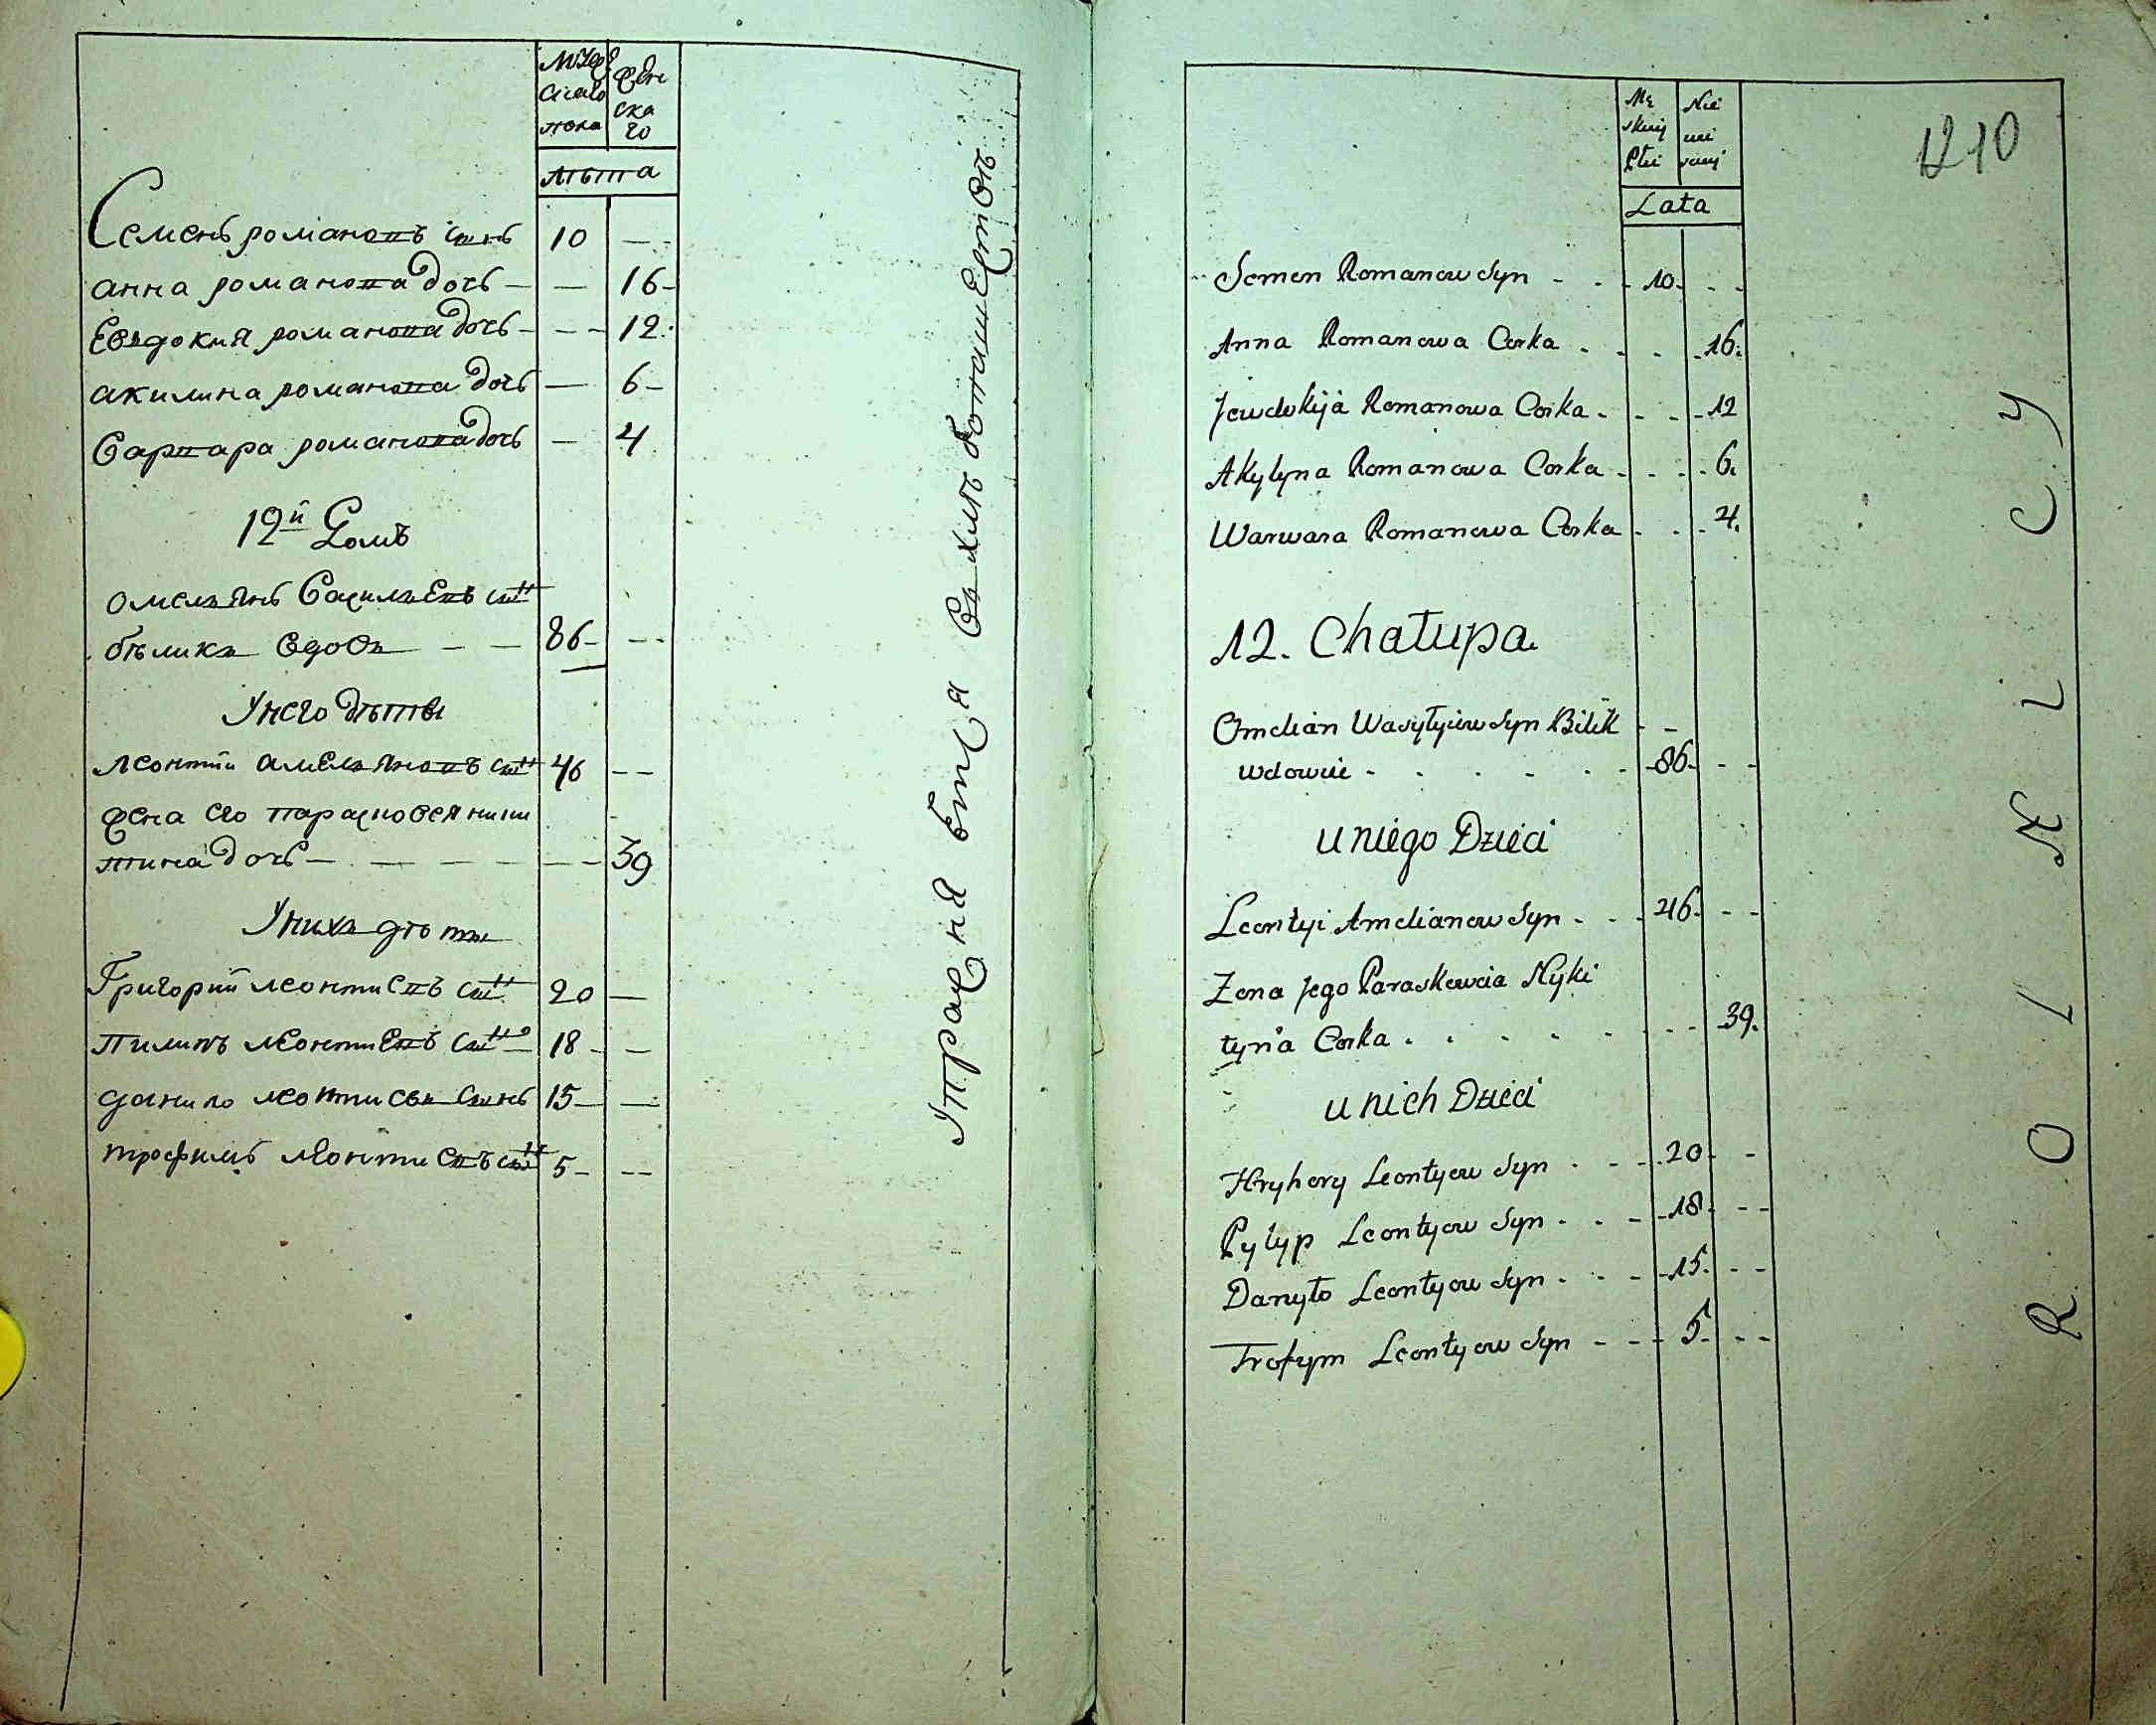 Мужескаго пола
Женскаго
лѣта
Семенъ романовъ сынъ 10 —
анна романова дочь — — 16 —
Евъдокия романова дочь — — 12.
акилина романова дочь — 6 —
Варвара романова дочь — 4
12й Домъ
омельянъ Васильевъ сынъ
бѣликъ вдовъ — — 86 — —
У него дѣти
леонтий амельяновъ сынъ 46 — —
жена его парасковея ники
тина дочь — — — — — 39
У нихъ дѣти
Григорий леонтиевъ сынъ 20 —
пилипъ леонтиевъ сынъ 18 — —
данило леонтиевъ сынъ 15 — —
трофимъ леонтиевъ сынъ 5 — —
Męskiej Płci
Lata
1210
Semen Romanow Syn - - 10. - -
Anna Romanowa Corka . . . 16.
Jewdokija Romanowa Corka . - - 12
Akylyna Romanowa Corka . . . 6.
Warwara Romanowa Corka . . . 4.
12. Chałupa
Omelian Wasyłyiew Syn Bilik - -
wdowiec - . . - . . 86. - -
u niego Dzieci
Leontyi Amelianow Syn . . 46. - -
Zona Jego Paraskewia Nyki
tyna Corka . . . . . . . - - 39.
u nich Dzieci
Hryhory Leontyew Syn . - - 20 -
Pylyp Leontyow Syn . . - 18. - -
Danyło Leontyow Syn . - - 15. - -
Trofym Leontyow Syn - - - 5. - -
R O L N I C Y